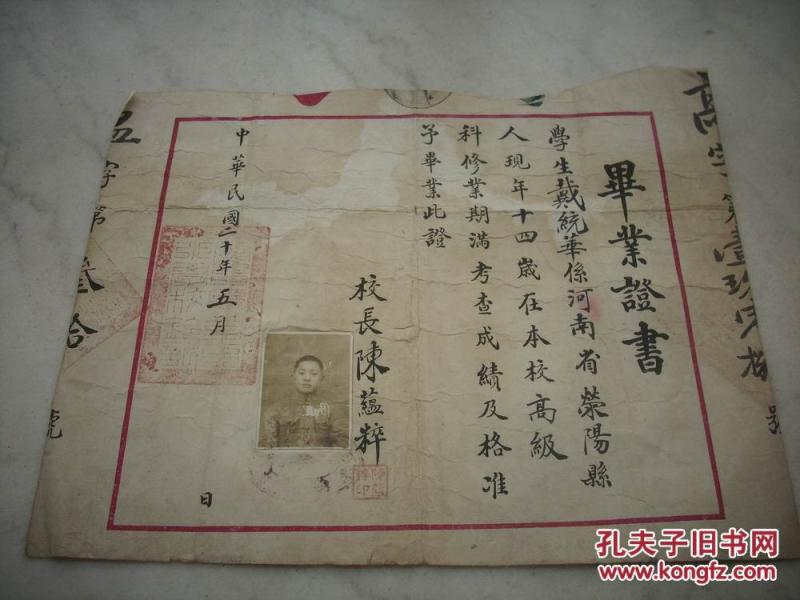 畢業證書
學生戴統華係河南省滎陽縣
人現年十四歲在本校高級
科修業期滿考查成績及格准
予畢業此證
校長陳蘊粹
中華民國二十年五月
日
字第叁拾
號
高字第壹玖
號
孔夫子旧书网
www.kongfz.com